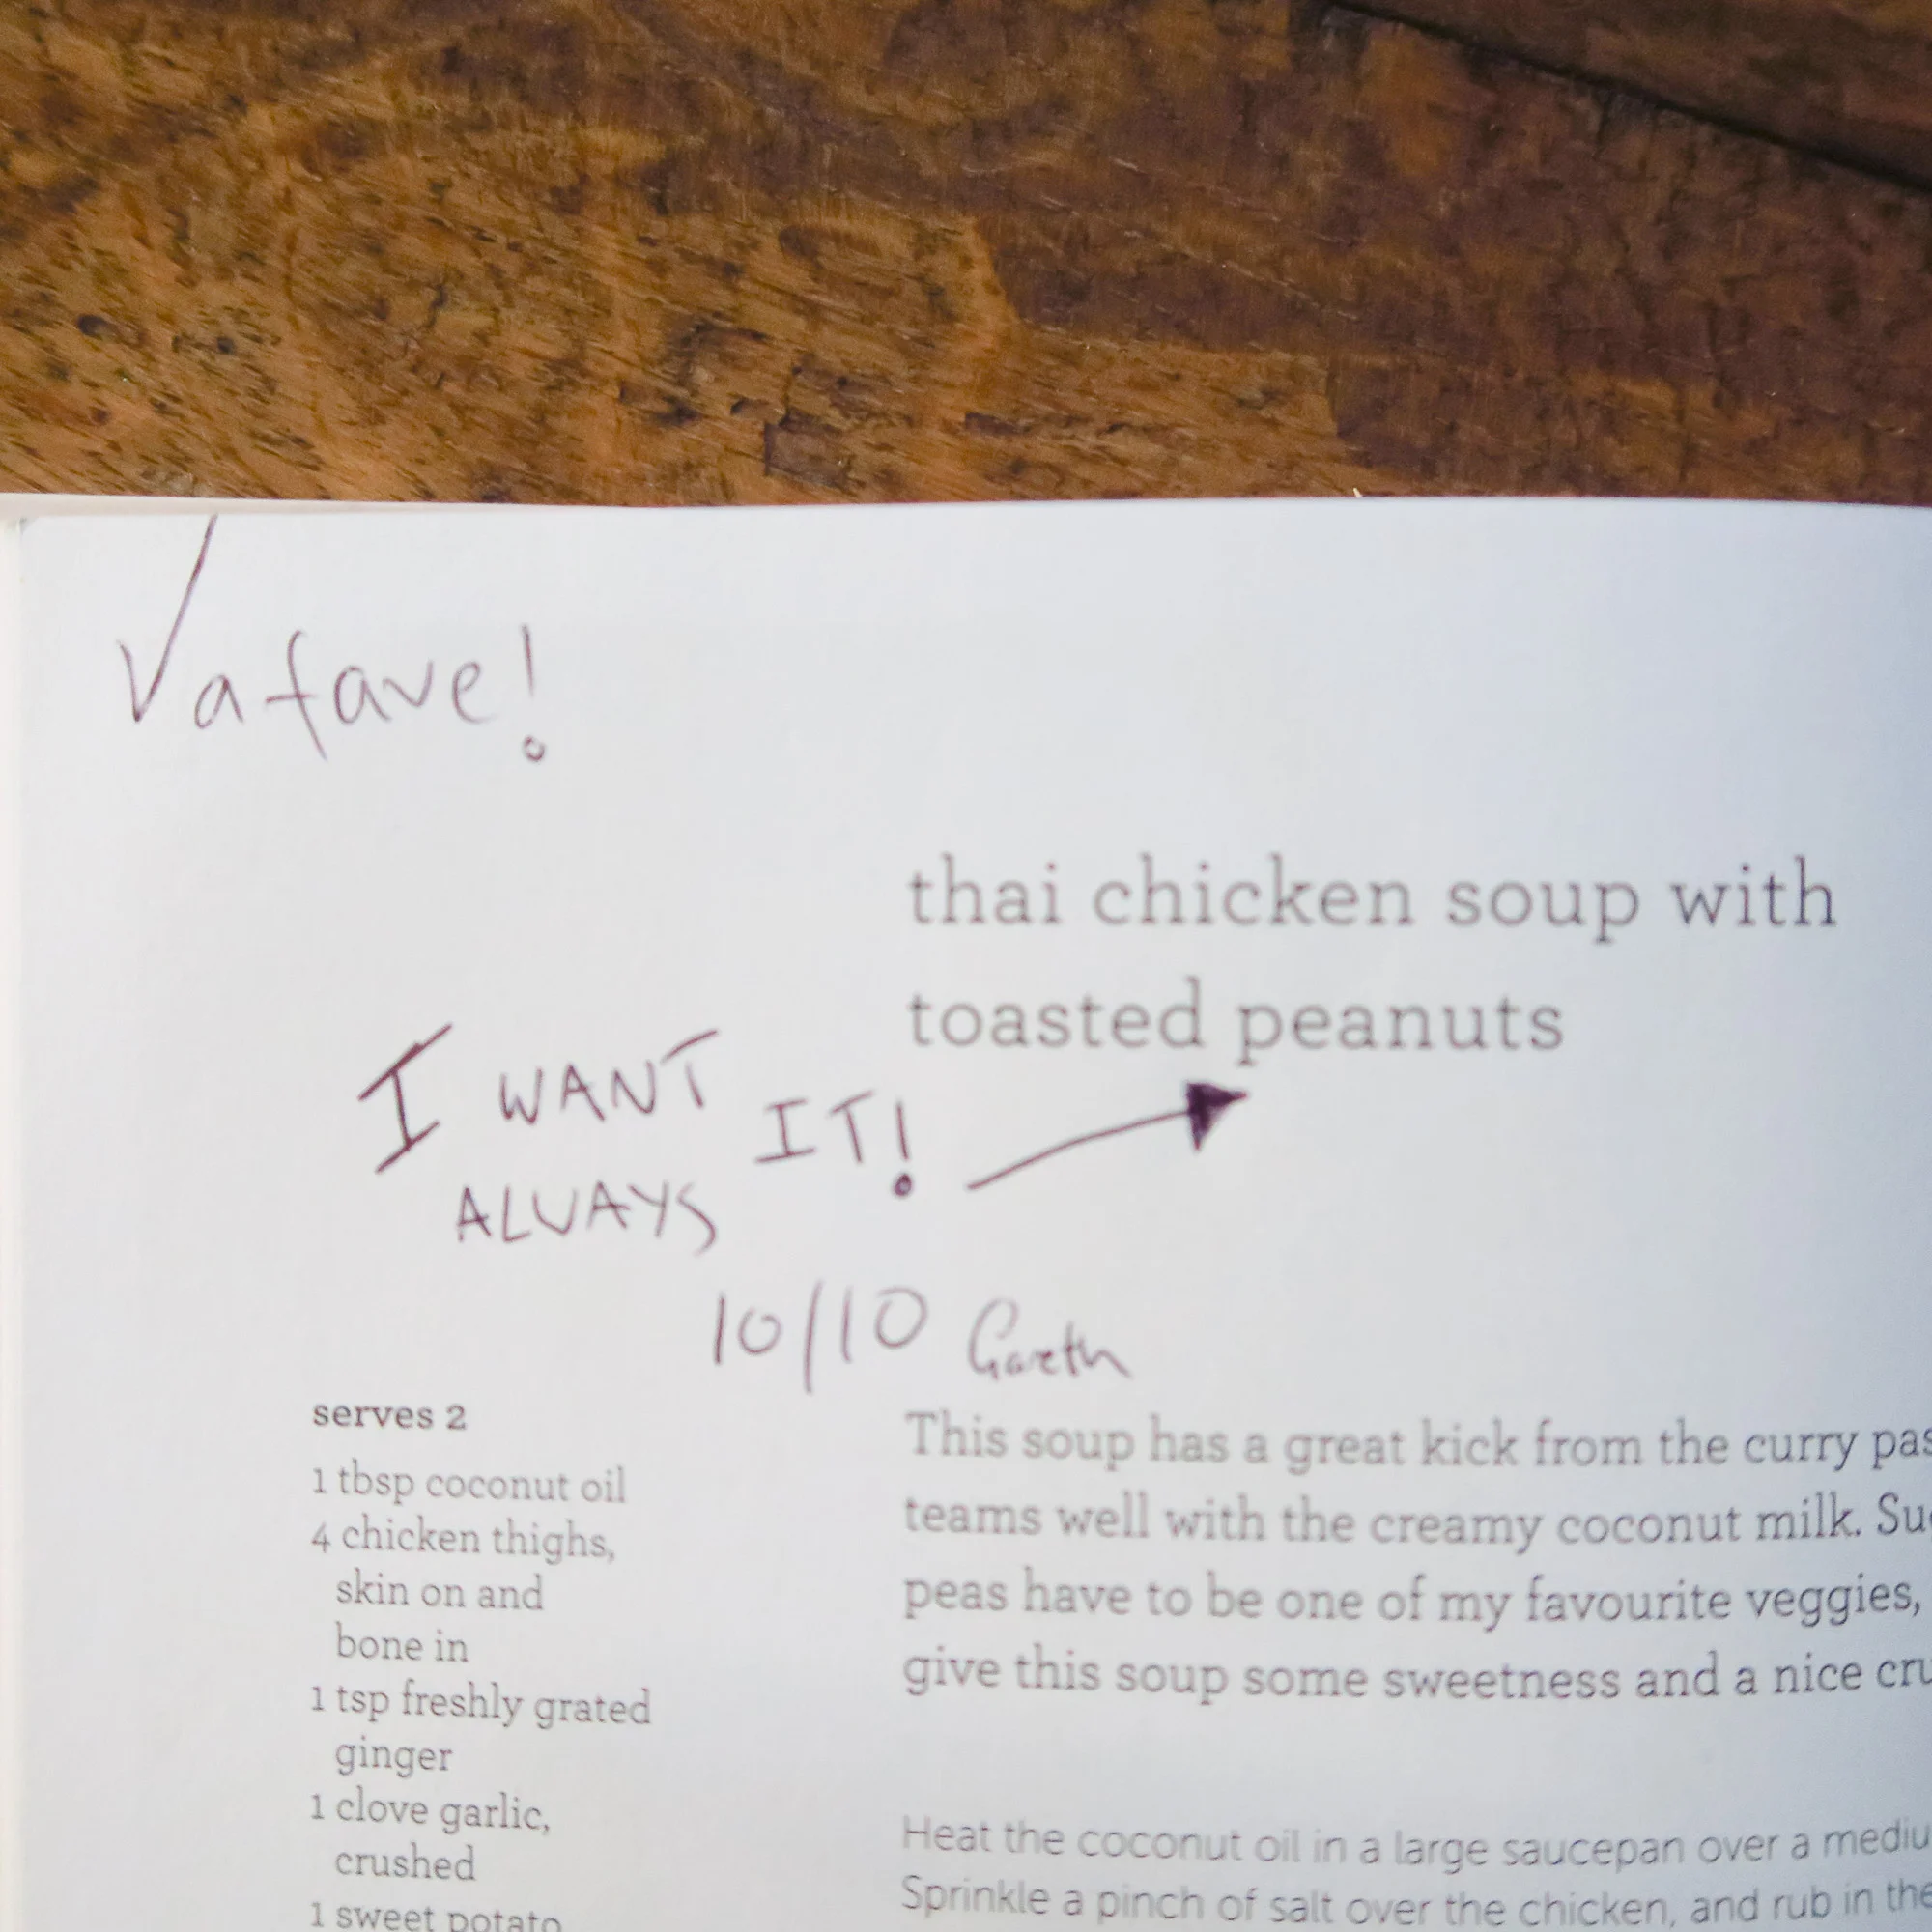 √ a fave!
thai chicken soup with
toasted peanuts
I WANT IT!
ALWAYS
10/10 Gareth
serves 2
1 tbsp coconut oil
4 chicken thighs,
skin on and
bone in
1 tsp freshly grated
ginger
1 clove garlic,
crushed
1 sweet potato,
This soup has a great kick from the curry pas
teams well with the creamy coconut milk. Su
peas have to be one of my favourite veggies,
give this soup some sweetness and a nice cru
Heat the coconut oil in a large saucepan over a mediu
Sprinkle a pinch of salt over the chicken, and rub in the